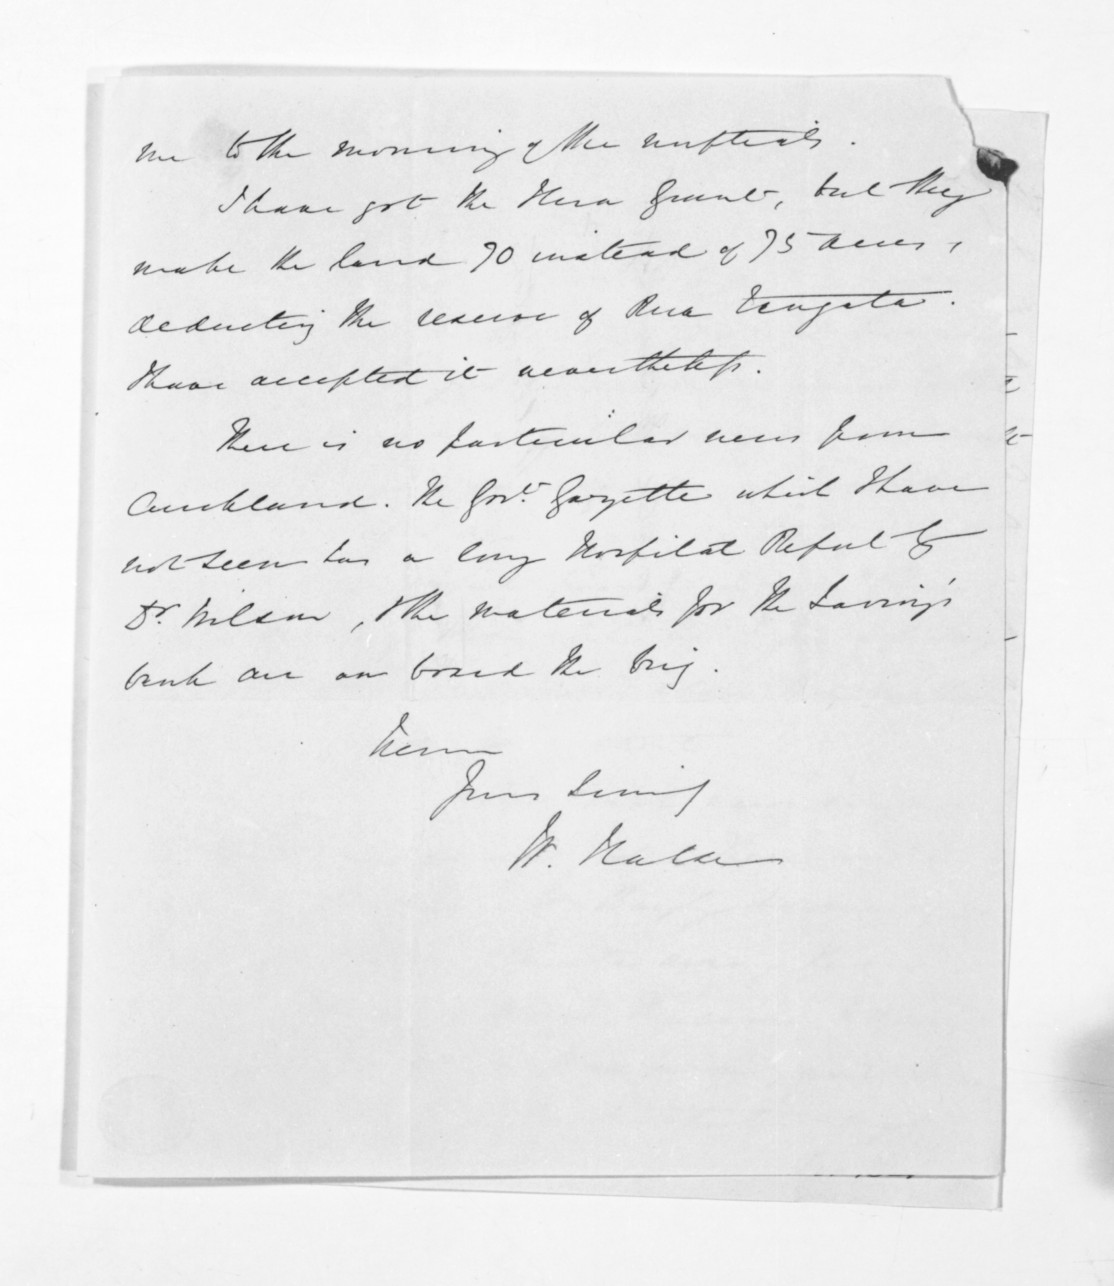 me to the morning of the nuptials.
I have got the Hera Grant, but they
make the land 70 instead of 75 acres,
deducting the reserve of Rua Tangata.
I have accepted it nevertheless.
There is no particular news from
Auckland. The Govt. Gazette which I have
not seen has a long Hospital Report by
Dr. Wilson, & the materials for the Saving's
bank are on board the brig.
Yours Sincy
W. Halse